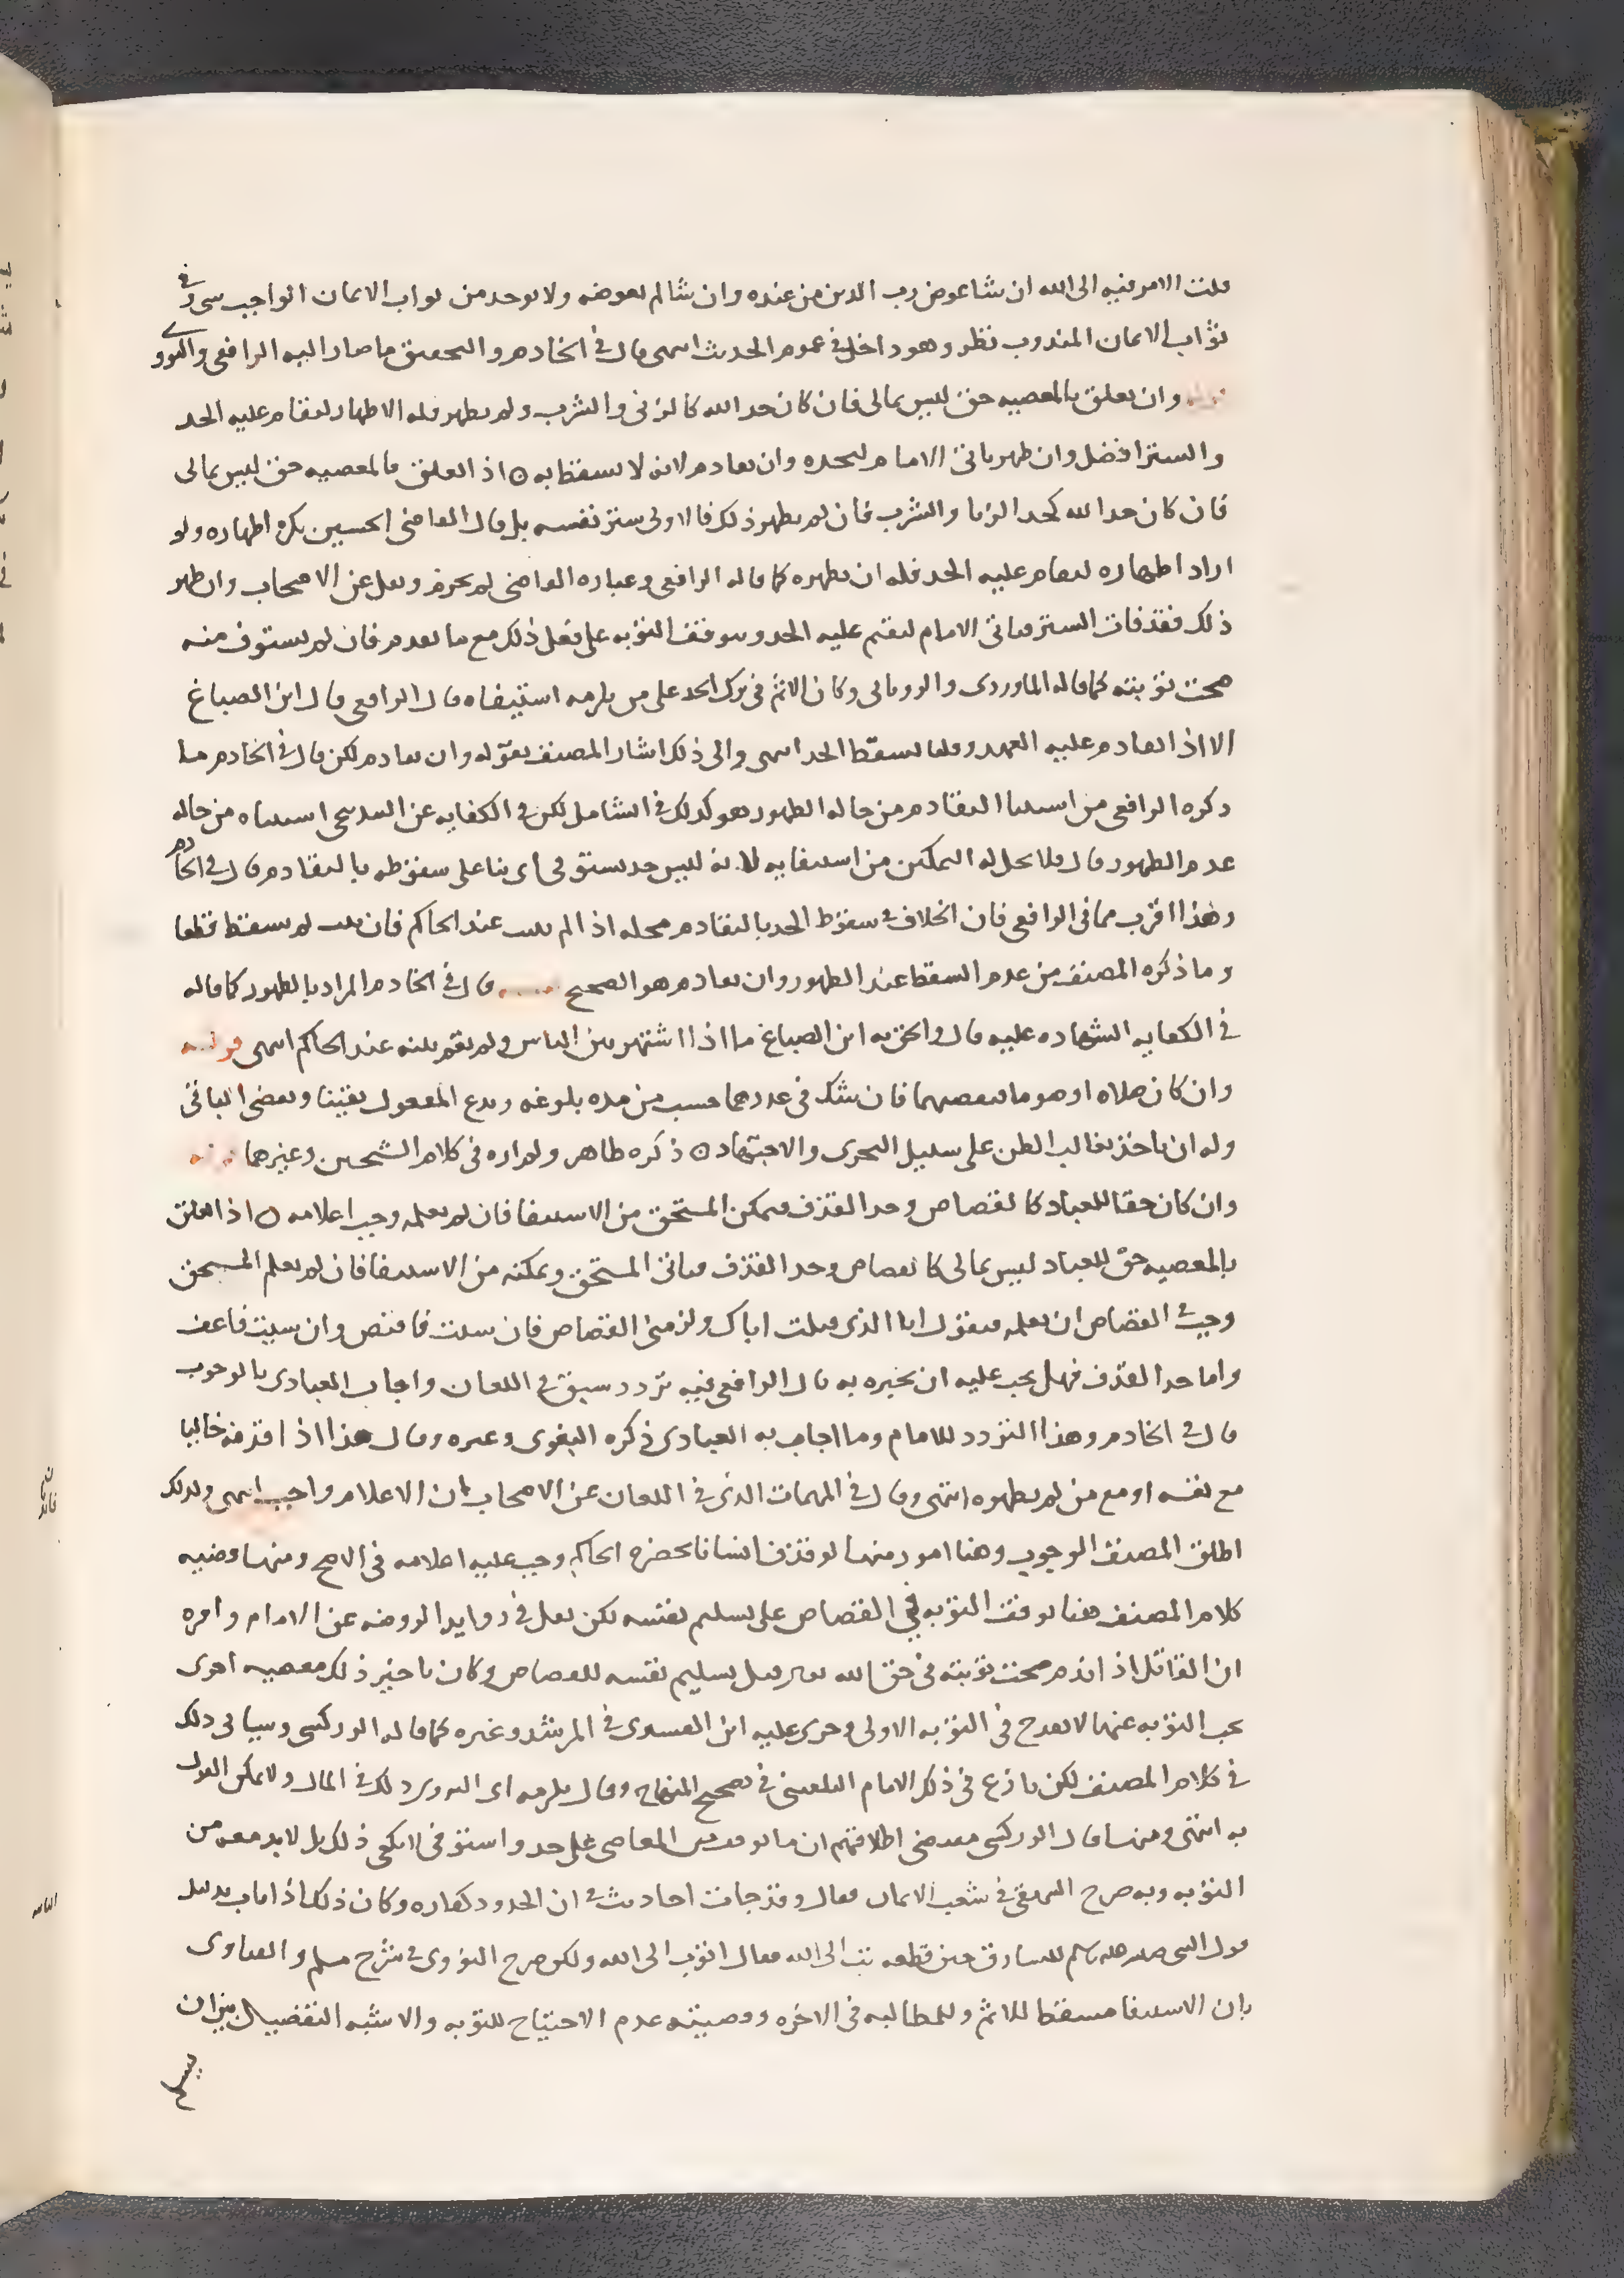 قلت الامر فيه الى الله ان شا عوض رب الدين من عنده وان شا لم يعوضه ولا يوخد من ثواب الايمان الواجب سى وفى
ثواب الايمان المندوب نظر وهو داخل فى عموم الحديث انتهى قال فى الخادم والتحقيق ما صار اليه الرافعى والنووى
قوله وان تعلق بالمعصيه حق ليس بمالى فان كان حد الله كالزنى والشرب ولم يظهر فله الاظهار ليقام عليه الحد
والستر افضل وان ظهر ياتى الامام ليحده وان تقادم لانه لا يسقط به ٥ اذا تعلق بالمعصيه حق ليس بمالى
فان كان حد الله كحد الزنا والشرب فان لم يظهر ذلك فالاولى ستر نفسه بل قال القاضى الحسين يكره اظهاره ولو
اراد اظهاره ليقام عليه الحد فله ان يظهره كما قاله الرافعى وعباره القاضى لم يحرم ونقل عن الاصحاب وان ظهر
ذلك فقد فات الستر فياتى الامام ليقيم عليه الحد وتتوقف التوبه على فعل ذلك مع ما تقدم فان لم يستوف منه
صحت توبته كما قاله الماوردى والرويانى وكان الاثم فى ترك الحد على من يلزمه استيفاه قال الرافعى قال ابن الصباغ
الا اذا تقادم عليه العهد وقلنا يسقط الحد انتهى والى ذلك اشار المصنف بقوله وان تقادم لكن قال فى الخادم ما
ذكره الرافعى من استثنا التقادم من حاله الظهور هو كذلك فى الشامل لكن فى الكفايه عن البندنيجى استثناه من حاله
عدم الظهور قال فلا يحل له التمكين من استيفايه لانه ليس حد يستوفى اى بنا على سقوطه بالتقادم قال فى الخادم
وهذا اقرب مما فى الرافعى فان الخلاف فى سقوط الحد بالتقادم محله اذا لم يثبت عند الحاكم فان ثبت لم يسقط قطعا
وما ذكره المصنف من عدم السقط عند الظهور وان تقادم هو الصحيح قال فى الخادم المراد بالظهور كما قاله
فى الكفايه الشهاده عليه قال والحق به ابن الصباغ ما اذا اشتهر بين الناس ولم تقم بينه عند الحاكم انتهى قوله
وان كان صلاه او صوما فيقضيهما فان شك فى عددهما حسب من مده بلوغه ويدع المفعول يقينا ويقضى الباقى
وله ان ياخذ بغالب الظن على سبيل التحرى والاجتهاد ٥ ذكره طاهر ولم اره فى كلام الشيخين وغيرهما قوله
وان كان حقا للعباد كالقصاص وحد القذف فيمكن المستحق من الاستيفا فان لم يعلمه وجب اعلامه ٥ اذا تعلق
بالمعصيه حق للعباد ليس بمالى كالقصاص وحد القذف فياتى المستحق ويمكنه من الاستيفا فان لم يعلم المستحق
وجب فى القصاص ان يعلمه فيقول انا الذى قتلت اباك ولزمنى القصاص فان شيت فاقتص وان شيت فاعف
واما حد القذف فهل يجب عليه ان يخبره به قال الرافعى فيه تردد سبق فى اللعان واجاب العبادى بالوجوب
قال فى الخادم وهذا التردد للامام وما اجاب به العبادى ذكره البغوى وغيره وقال هذا اذا قذفه خاليا
مع نفسه او مع من لم يظهره انتهى وقال فى المهمات الذى فى اللعان عن الاصحاب بان الاعلام واجب انتهى ولذلك
اطلق المصنف الوجوب وهنا امور منها لو قذف انسانا بحضره الحاكم وجب عليه اعلامه فى الاصح ومنها قضيه
كلام المصنف هنا توقف التوبه فى القصاص على تسليم نفسه لكن نقل فى زوايد الروضه عن الامام واقره
ان القاتل اذا ندم صحت توبته فى حق الله تعالى قبل تسليم نفسه للقصاص وكان تاخير ذلك معصيه اخرى
يجب التوبه عنها لا تقدح فى التوبه الاولى وجرى عليه ابن القشيرى فى المرشد وغيره كما قاله الزركشى وسياتى ذلك
فى كلام المصنف لكن نازع فى ذلك الامام البلقينى فى تصحيح المنهاج وقال يلزمه اى النووى ذلك فى المال ولا يمكن القول
به انتهى ومنها قال الزركشى مقتضى اطلاقهم ان المعاصى على حد واستوفى لا يكفى ذلك بل لا بد معه من
التوبه وبه صرح البيهقى فى شعب الايمان فقال وقد جات احاديث فى ان الحدود كفاره وكان ذلك اذا تاب بدليل
قول النبى صلى الله عليه وسلم للسارق حين قطعه تب الى الله فقال اتوب الى الله ولكن صرح النووى فى شرح مسلم والفتاوى
بان الاستيفا مسقط للاثم وللمطالبه فى الاخره وقضيته عدم الاحتياج للتوبه والاشبه التفضيل بين ان